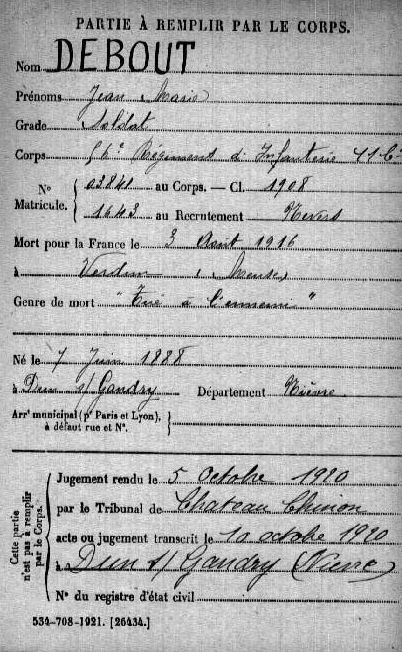 PARTIE À REMPLIR PAR LE CORPS.
Nom DEBOUT
Prénoms Jean Marie
Grade Soldat
Corps 56e Régiment d'Infanterie 11 Cie
No Matricule. { 03841 au Corps. — Cl. 1908
1643 au Recrutement Nevers
Mort pour la France le 3 Août 1916
à Verdun (Meuse)
Genre de mort "Tué à l'ennemi"
Né le 7 Juin 1888
à Dun s/ Gandry Département Nièvre
Arrt municipal (pr Paris et Lyon), à défaut rue et No. }
Cette partie n'est pas à remplir par le Corps.
Jugement rendu le 5 octobre 1920
par le Tribunal de Chateau Chinon
acte ou jugement transcrit le 10 octobre 1920
à Dun s/ Gandry (Nièvre)
No du registre d'état civil
534-708-1921. [26434.]